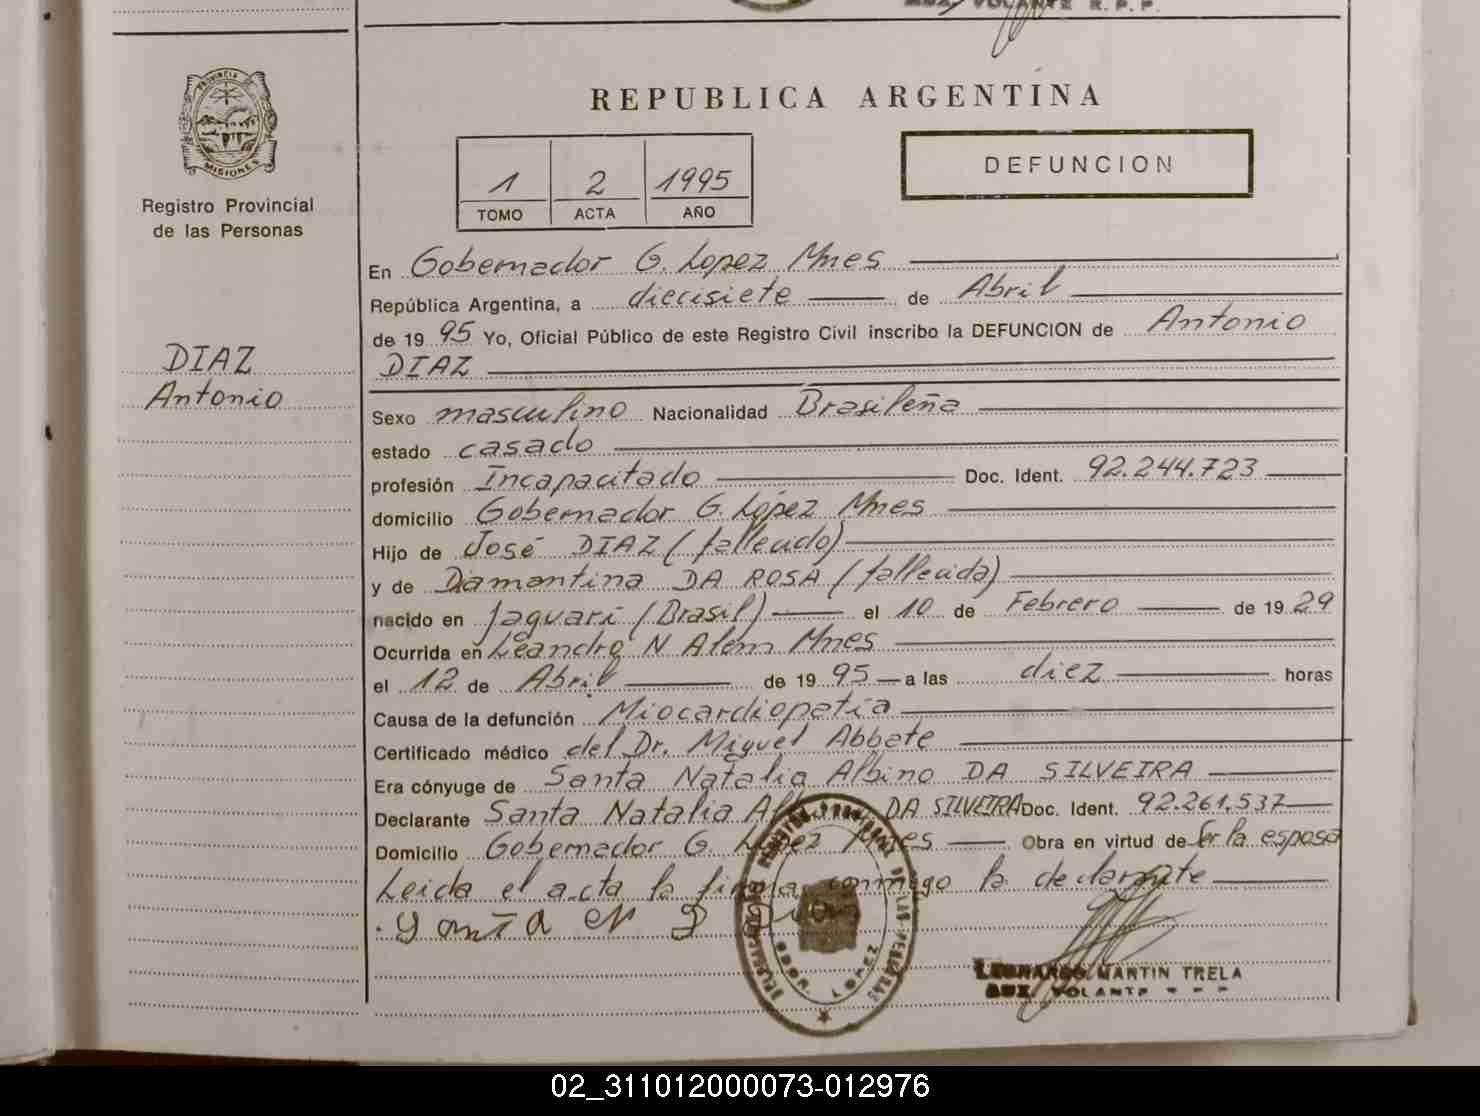 AUX. VOLANTE R.P.P.
PROVINCIA DE
MISIONES
Registro Provincial
de las Personas
REPUBLICA ARGENTINA
1 2 1995
TOMO ACTA AÑO
DEFUNCION
DIAZ
Antonio
En Gobernador G. Lopez Mnes
República Argentina, a diecisiete de Abril
de 19 95 Yo, Oficial Público de este Registro Civil inscribo la DEFUNCION de Antonio
DIAZ
Sexo masculino Nacionalidad Brasileña
estado casado
profesión Incapacitado Doc. Ident. 92.244.723
domicilio Gobernador G. López Mnes
Hijo de José DIAZ (fallecido)
y de Diamantina DA ROSA (fallecida)
nacido en Jaguarí (Brasil) el 10 de Febrero de 19 29
Ocurrida en Leandro N Alem Mnes
el 12 de Abril de 19 95 a las diez horas
Causa de la defunción Miocardiopatía
Certificado médico del Dr. Miguel Abbate
Era cónyuge de Santa Natalia Albino DA SILVEIRA
Declarante Santa Natalia DA SILVEIRA Doc. Ident. 92.261.537
Domicilio Gobernador G. López Mnes Obra en virtud de Ser la esposa
Leida el acta la firma conmigo la declarante
LEONARDO MARTIN TRELA
AUX. VOLANTE R.P.P.
02_311012000073-012976